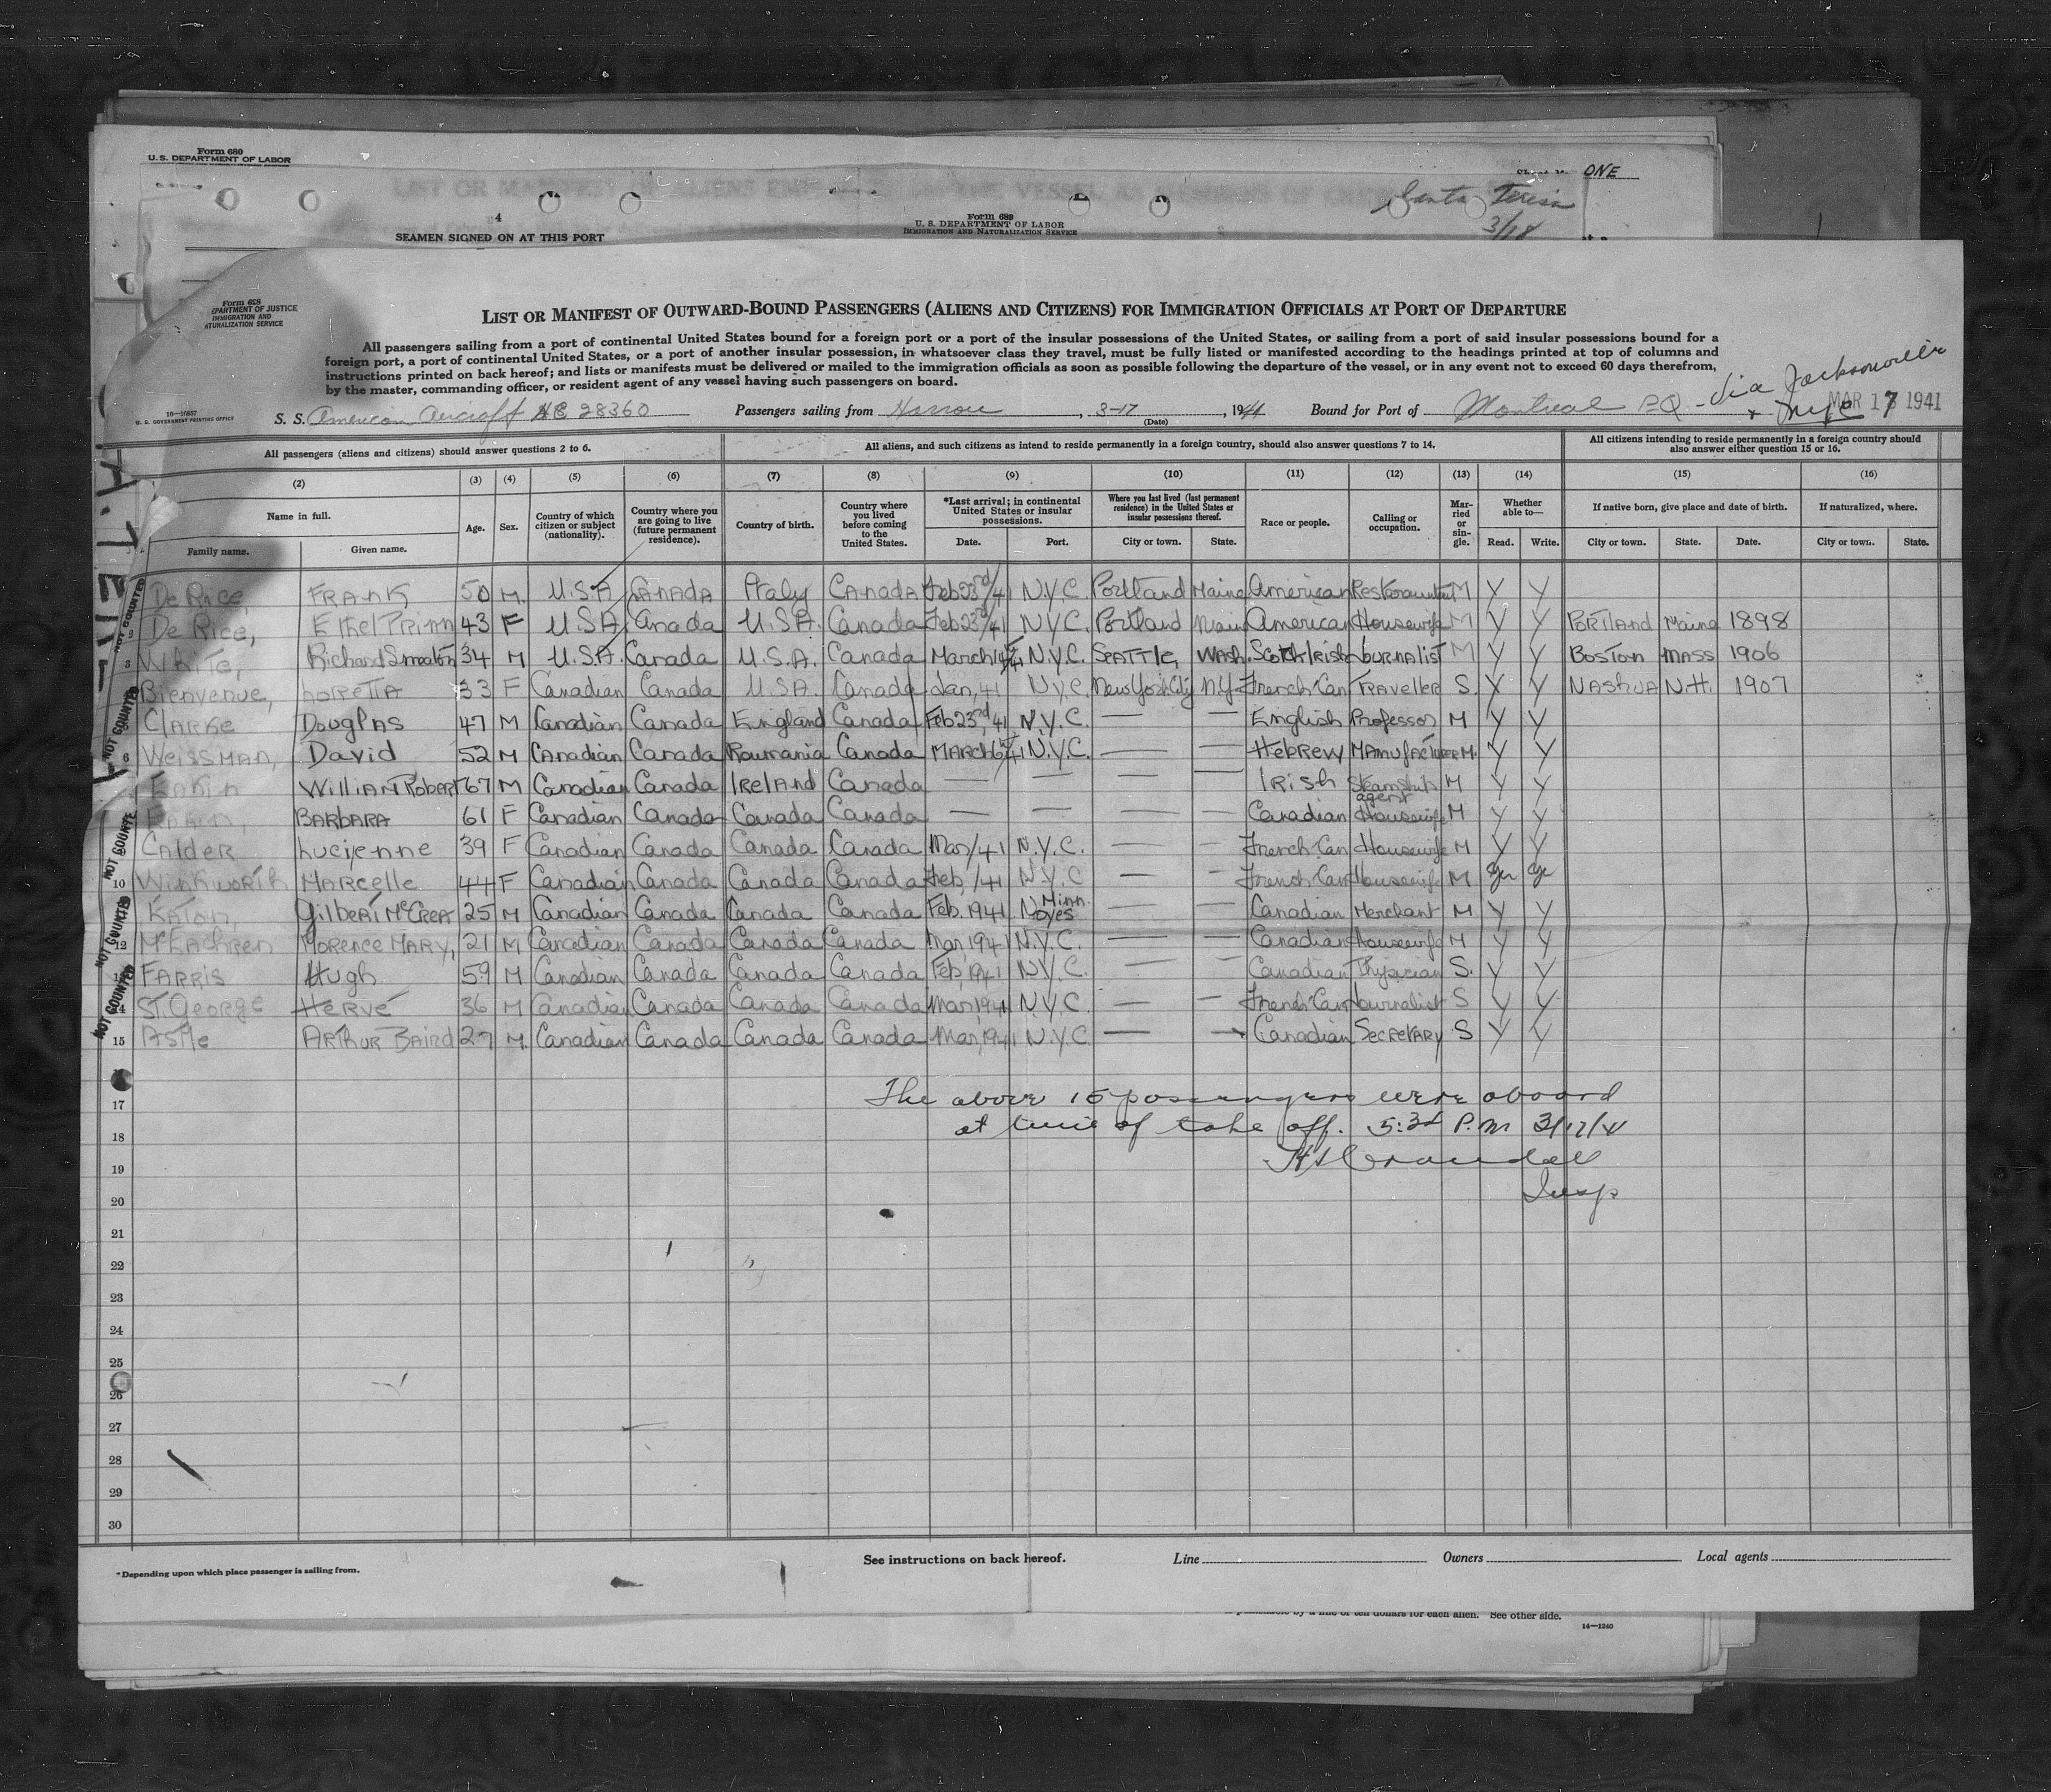 Form 680
U.S. DEPARTMENT OF LABOR
ONE
Santa Teresa
3/18
4
SEAMEN SIGNED ON AT THIS PORT
Form 689
U. S. DEPARTMENT OF LABOR
IMMIGRATION AND NATURALIZATION SERVICE
Form 628
EPARTMENT OF JUSTICE
IMMIGRATION AND
ATURALIZATION SERVICE
LIST OR MANIFEST OF OUTWARD-BOUND PASSENGERS (ALIENS AND CITIZENS) FOR IMMIGRATION OFFICIALS AT PORT OF DEPARTURE
All passengers sailing from a port of continental United States bound for a foreign port or a port of the insular possessions of the United States, or sailing from a port of said insular possessions bound for a
foreign port, a port of continental United States, or a port of another insular possession, in whatsoever class they travel, must be fully listed or manifested according to the headings printed at top of columns and
instructions printed on back hereof; and lists or manifests must be delivered or mailed to the immigration officials as soon as possible following the departure of the vessel, or in any event not to exceed 60 days therefrom,
by the master, commanding officer, or resident agent of any vessel having such passengers on board.
16—16857
U. S. GOVERNMENT PRINTING OFFICE
S. S. American aircraft NC 28360 Passengers sailing from , 3-17 , 1941 Bound for Port of Montreal PQ - via Jacksonville + NYC MAR 17 1941
(Date)
All passengers (aliens and citizens) should answer questions 2 to 6.
All aliens, and such citizens as intend to reside permanently in a foreign country, should also answer questions 7 to 14.
All citizens intending to reside permanently in a foreign country should also answer either question 15 or 16.
(2) (3) (4) (5) (6) (7) (8) (9) (10) (11) (12) (13) (14) (15) (16)
Name in full. Age. Sex. Country of which citizen or subject (nationality). Country where you are going to live (future permanent residence). Country of birth. Country where you lived before coming to the United States. *Last arrival; in continental United States or insular possessions. Where you last lived (last permanent residence) in the United States or insular possessions thereof. Race or people. Calling or occupation. Married or single. Whether able to— If native born, give place and date of birth. If naturalized, where.
Family name. Given name. Date. Port. City or town. State. Read. Write. City or town. State. Date. City or town. State.
De Rice, FRANK 50 M. U.S.A CANADA Italy CANADA Feb 23rd/41 N.Y.C. Portland Maine American M Y Y
De Rice, Ethel 43 F U.S.A. Canada U.S.A. Canada Feb 23rd/41 N.Y.C. Portland American Housewife M Y Y PORTLAND Maine 1898
3 White, Richard Smeaton 34 M U.S.A. Canada U.S.A. Canada March N.Y.C. SEATTLE WASH. Scotch Irish JOURNALIST M Y Y BOSTON MASS 1906
Bienvenue, LORETTA 33 F Canadian Canada U.S.A. Canada Jan, 41 N.Y.C. New York City N.Y. French Can TRAVELLER S. Y Y NASHUA N.H. 1907
CLARKE Douglas 47 M Canadian Canada England Canada Feb 23rd, 41 N.Y.C. — — English Professor M Y Y
6 WEISSMAN, David 52 M CANADIAN Canada Roumania Canada MARCH 6 41 N.Y.C. — — HEBREW MANUFACTURER M. Y Y
Eakin WILLIAM ROBERT 67 M Canadian Canada IRELAND Canada — — — — IRISH Steamship agent M Y Y
BARBARA 61 F Canadian Canada Canada Canada — — — — Canadian Housewife M Y Y
CALDER Lucienne 39 F Canadian Canada Canada Canada Mar/41 N.Y.C. — — French Can Housewife M Y Y
10 Winkworth MARCELLE 44 F Canadian Canada Canada Canada Feb, /41 N.Y.C — — French Can Housewife M
Gilbert McCrea 25 M Canadian Canada Canada Canada Feb. 1941 Noyes Minn. — — Canadian Merchant M Y Y
12 McEachren Florence MARY, 21 M Canadian Canada Canada Canada Mar, 1941 N.Y.C. — — Canadian Housewife M Y Y
13 FARRIS Hugh 59 M Canadian Canada Canada Canada Feb, 1941 N.Y.C. — — Canadian Physician S. Y Y
14 ST. George HERVÉ 36 M Canadian Canada Canada Canada Mar, 1941 N.Y.C. — — French Can Journalist S Y Y
15 ARTHUR Baird 27 M. Canadian Canada Canada Canada Mar, 1941 N.Y.C. — — Canadian SECRETARY S Y Y
NOT COUNTED
NOT COUNTED
NOT COUNTED
NOT COUNTED
NOT COUNTED
The above 15 passengers were aboard
17
at time of take off. P.M 3/17/41
18
Crandall
19
Insp
20
21
22
23
24
25
26
27
28
29
30
See instructions on back hereof. Line Owners Local agents
*Depending upon which place passenger is sailing from.
See other side.
14—1240